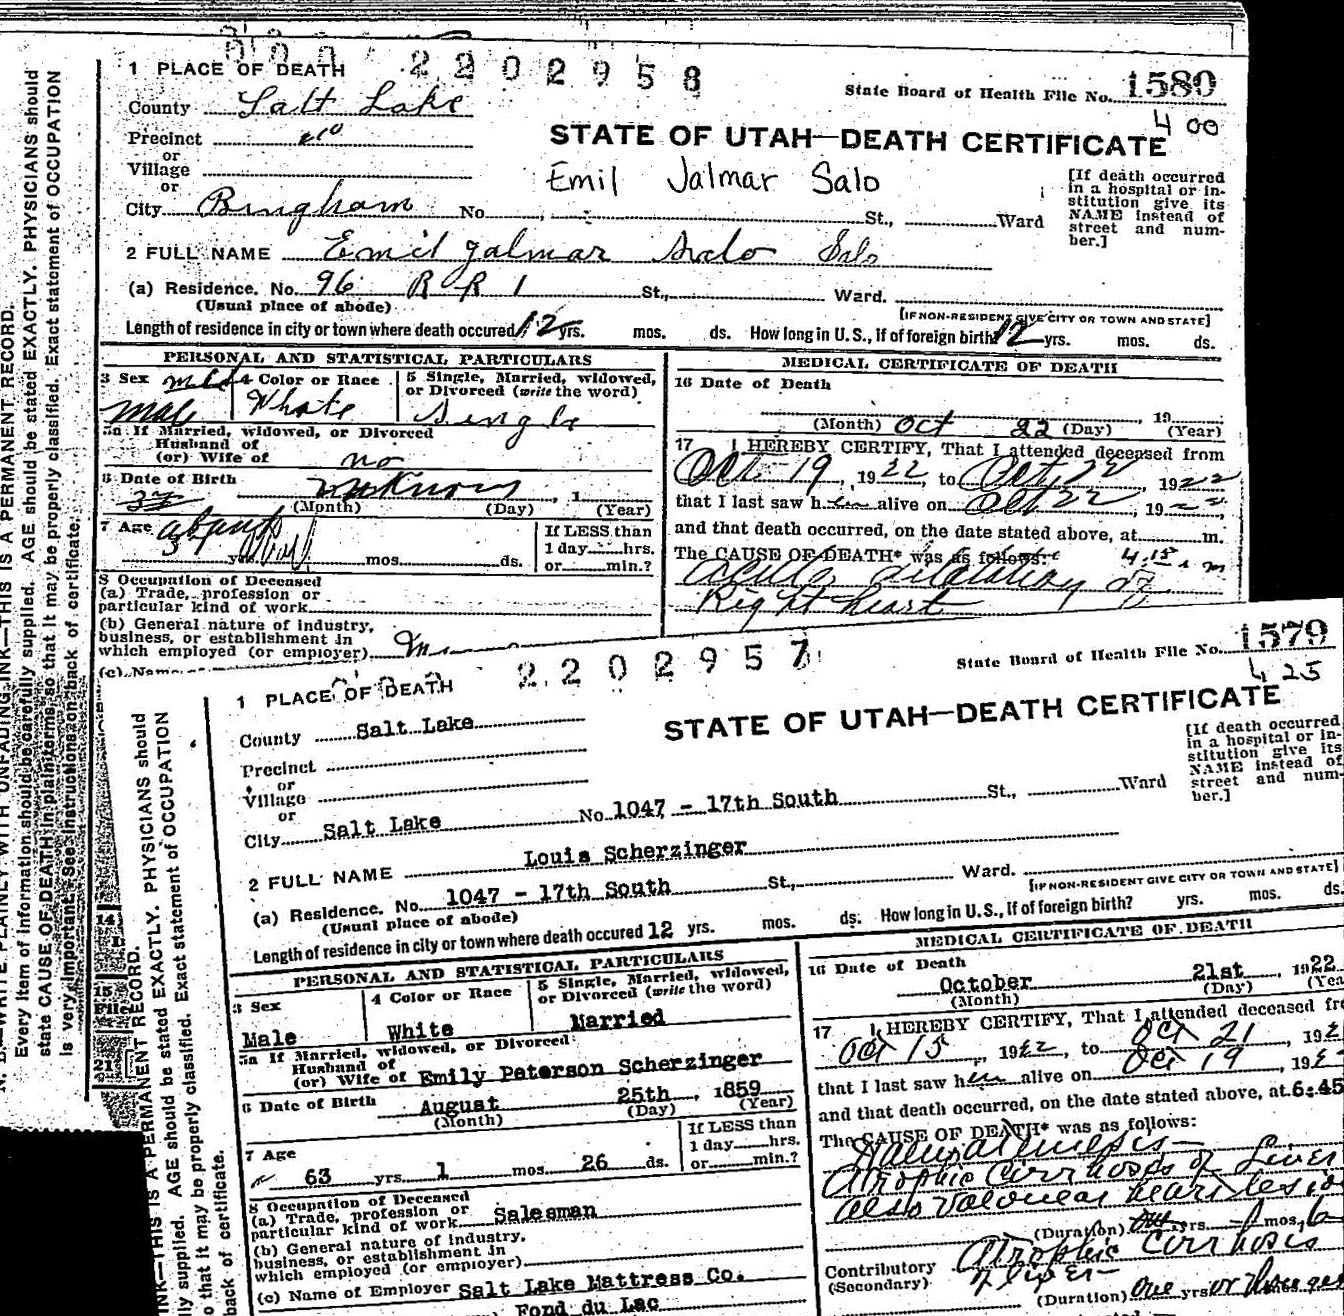 2202958
1 PLACE OF DEATH
State Board of Health File No. 1580
400
County Salt Lake
STATE OF UTAH—DEATH CERTIFICATE
Precinct
or
Village
or
Emil Jalmar Salo
[If death occurred
in a hospital or in-
stitution give its
NAME instead of
street and num-
ber.]
City Bingham No. St., Ward
2 FULL NAME Emil Jalmar Salo Salo
(a) Residence. No. 96 R R 1 St., Ward.
(Usual place of abode)
[IF NON-RESIDENT GIVE CITY OR TOWN AND STATE]
Length of residence in city or town where death occured 12 yrs. mos. ds. How long in U.S., if of foreign birth 12 yrs. mos. ds.
PERSONAL AND STATISTICAL PARTICULARS
3 Sex Male
4 Color or Race White
5 Single, Married, widowed,
or Divorced (write the word)
Single
5a If Married, widowed, or Divorced
Husband of
(or) Wife of no
6 Date of Birth
(Month) (Day) (Year)
7 Age about
yrs. mos. ds.
If LESS than
1 day hrs.
or min.?
8 Occupation of Deceased
(a) Trade, profession or
particular kind of work
(b) General nature of industry,
business, or establishment in
which employed (or employer)
(c) Name
MEDICAL CERTIFICATE OF DEATH
16 Date of Death
19
(Month) Oct 22 (Day) (Year)
17 I HEREBY CERTIFY, That I attended deceased from
Oct 19, 1922, to Oct, 22 1922
that I last saw him alive on Oct 22, 1922,
and that death occurred, on the date stated above, at m.
The CAUSE OF DEATH* was as follows: 4.15 a m
acute dilatation of
Right heart
N. B.—WRITE PLAINLY WITH UNFADING INK—THIS IS A PERMANENT RECORD.
Every item of information should be carefully supplied. AGE should be stated EXACTLY. PHYSICIANS should
state CAUSE OF DEATH in plain terms, so that it may be properly classified. Exact statement of OCCUPATION
is very important. See instructions on back of certificate.
14
15
File
21
2202957
1 PLACE OF DEATH
State Board of Health File No. 1579
425
County Salt Lake
STATE OF UTAH—DEATH CERTIFICATE
Precinct
or
Village
or
[If death occurred
in a hospital or in-
stitution give its
NAME instead of
street and num-
ber.]
City Salt Lake No. 1047 - 17th South St., Ward
2 FULL NAME Louis Scherzinger
(a) Residence. No. 1047 - 17th South St., Ward.
(Usual place of abode)
[IF NON-RESIDENT GIVE CITY OR TOWN AND STATE]
Length of residence in city or town where death occured 12 yrs. mos. ds. How long in U.S., if of foreign birth? yrs. mos. ds.
PERSONAL AND STATISTICAL PARTICULARS
3 Sex
Male
4 Color or Race
White
5 Single, Married, widowed,
or Divorced (write the word)
Married
5a If Married, widowed, or Divorced
Husband of
(or) Wife of Emily Peterson Scherzinger
6 Date of Birth August 25th, 1859
(Month) (Day) (Year)
7 Age
63 yrs. 1 mos. 26 ds.
If LESS than
1 day hrs.
or min.?
8 Occupation of Deceased
(a) Trade, profession or
particular kind of work Salesman
(b) General nature of industry,
business, or establishment in
which employed (or employer)
(c) Name of Employer Salt Lake Mattress Co.
Fond du Lac
MEDICAL CERTIFICATE OF DEATH
16 Date of Death
October 21st, 1922
(Month) (Day) (Yea
17 I HEREBY CERTIFY, That I attended deceased fr
Oct 15, 1922, to Oct 21, 192
that I last saw him alive on Oct 19, 192
and that death occurred, on the date stated above, at 6:45
The CAUSE OF DEATH* was as follows:
Hematemesis—
Atrophic Cirrhosis of Liver
also valvular heart lesion
(Duration) yrs. mos.
Contributory Atrophic Cirrhosis
(Secondary) of liver
(Duration) One yrs or
INK—THIS IS A PERMANENT RECORD.
ly supplied. AGE should be stated EXACTLY. PHYSICIANS should
o that it may be properly classified. Exact statement of OCCUPATION
back of certificate.